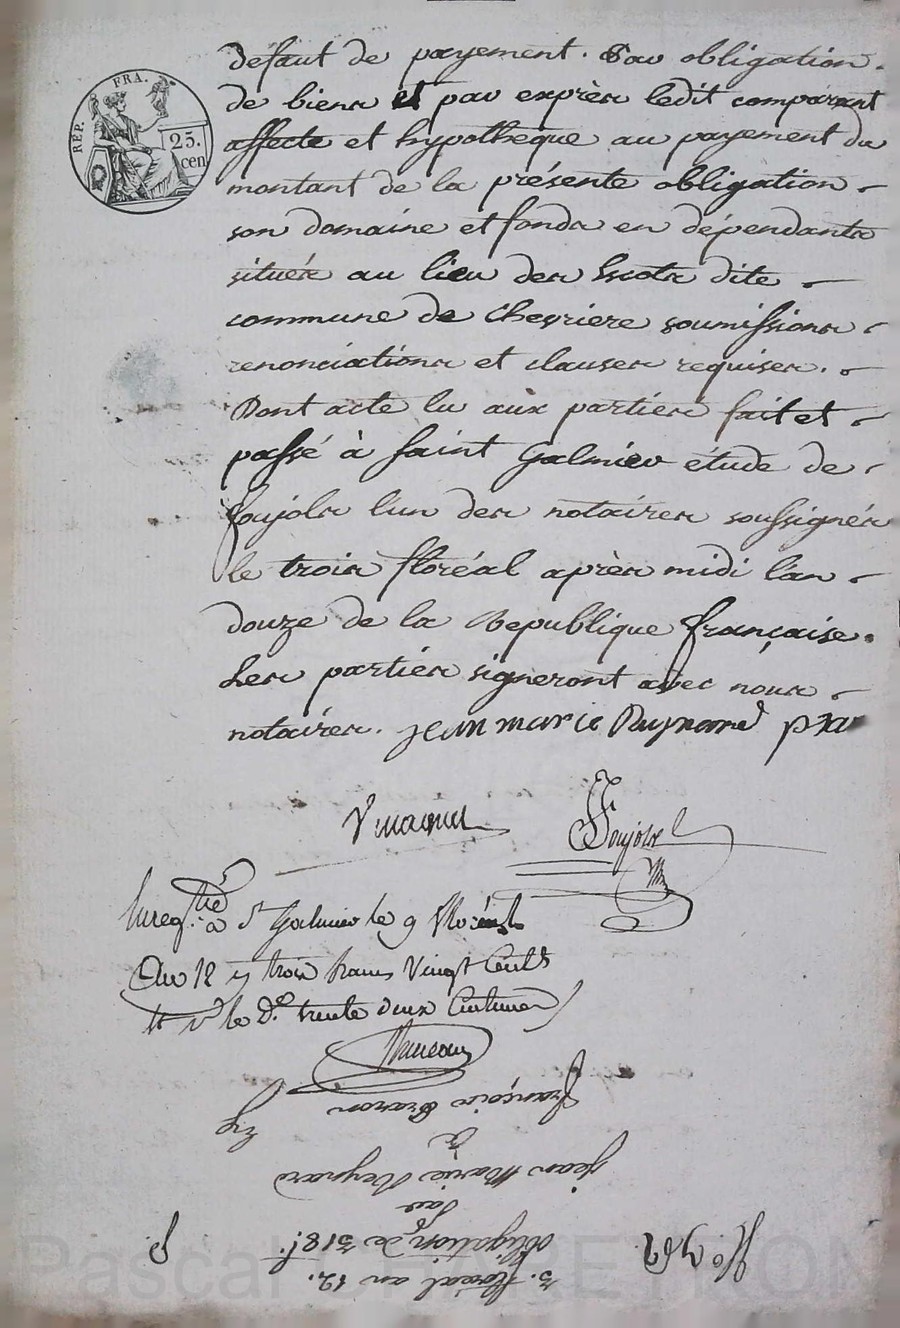 RÉP. FRA.
25.
cen
défaut de payement. Par obligation
de biens et par exprès ledit comparant
affecte et hypothèque au payement du
montant de la présente obligation
son domaine et fonds en dépendants
situés au lieu des
commune de Chevriere soumissions
renonciations et clauses requises.
Dont acte lu aux parties fait et
passé à Saint Galmier étude de
Soujols l'un des notaires soussignés
le trois floréal après midi l'an
douze de la Republique française.
Les parties signeront avec nous
notaires. jean marie
Soujols
Enreg.tré à St Galmier le 9 floréal
an 12 trois francs vingt cents
et le trente deux centimes
françois
jean Marie Reynard
par
obligation de 318 f.
3. floréal an 12.